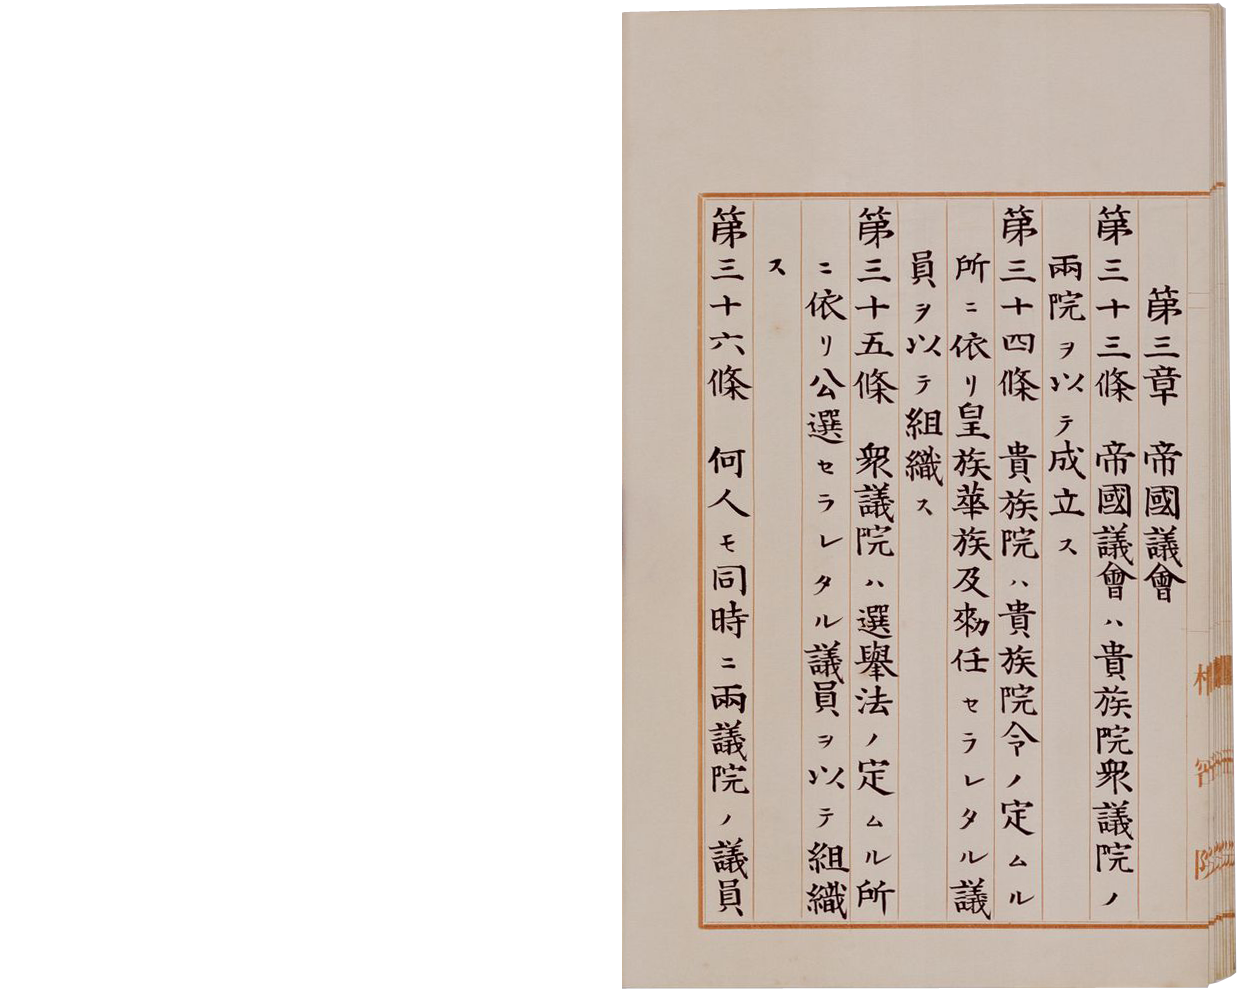 第三章　帝國議會
第三十三條　帝國議會ハ貴族院衆議院ノ
兩院ヲ以テ成立ス
第三十四條　貴族院ハ貴族院令ノ定ムル
所ニ依リ皇族華族及勅任セラレタル議
員ヲ以テ組織ス
第三十五條　衆議院ハ選擧法ノ定ムル所
ニ依リ公選セラレタル議員ヲ以テ組織
ス
第三十六條　何人モ同時ニ兩議院ノ議員